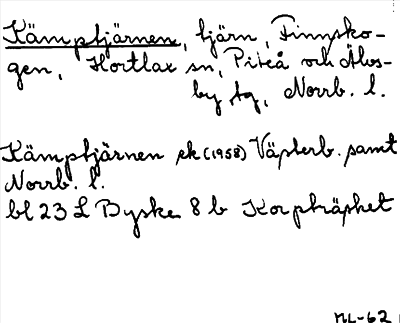 Kämptjärnen, tjärn, Finnsko-
gen, Hortlax sn, Piteå och Älvs-
by tg, Norrb. l.
Kämptjärnen ek (1958) Västerb. samt
Norrb. l.
bl 23 L Byske 8 b Korpträsket
ML-62